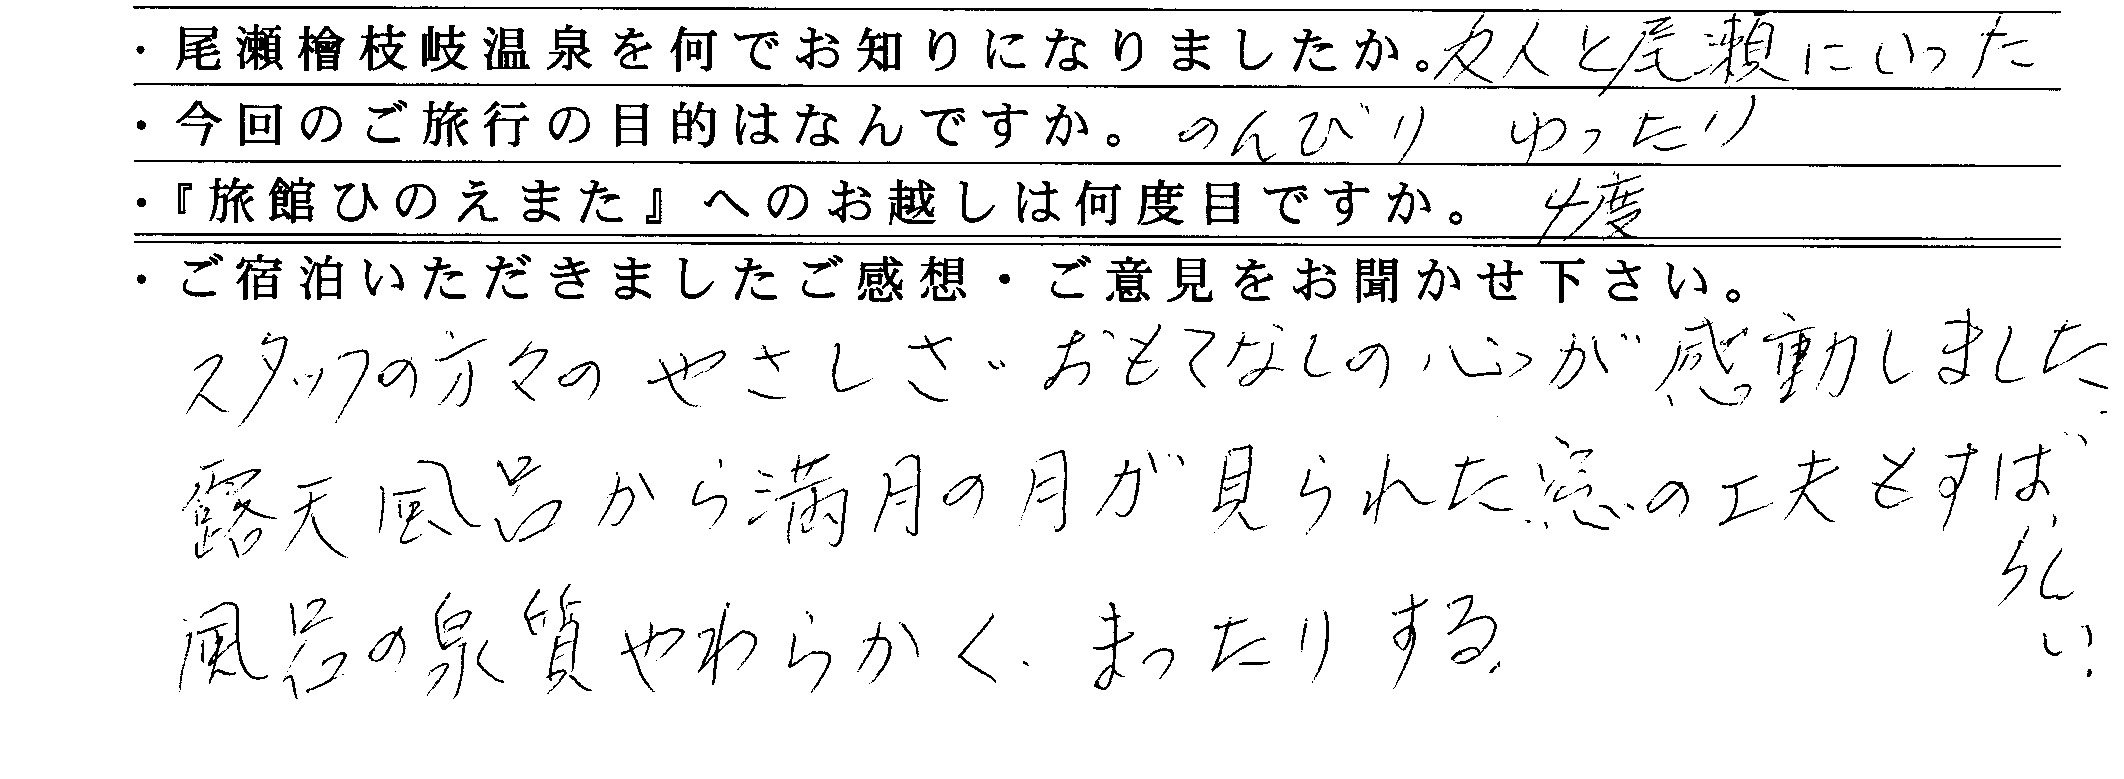 ・尾瀬檜枝岐温泉を何でお知りになりましたか。友人と尾瀬にいった
・今回のご旅行の目的はなんですか。のんびり ゆったり
・『旅館ひのえまた』へのお越しは何度目ですか。 4度
・ご宿泊いただきましたご感想・ご意見をお聞かせ下さい。
スタッフの方々のやさしさ、おもてなしの心が感動しました。
露天風呂から満月の月が見られた、窓の工夫もすばらしい。
風呂の泉質やわらかく、まったりする。